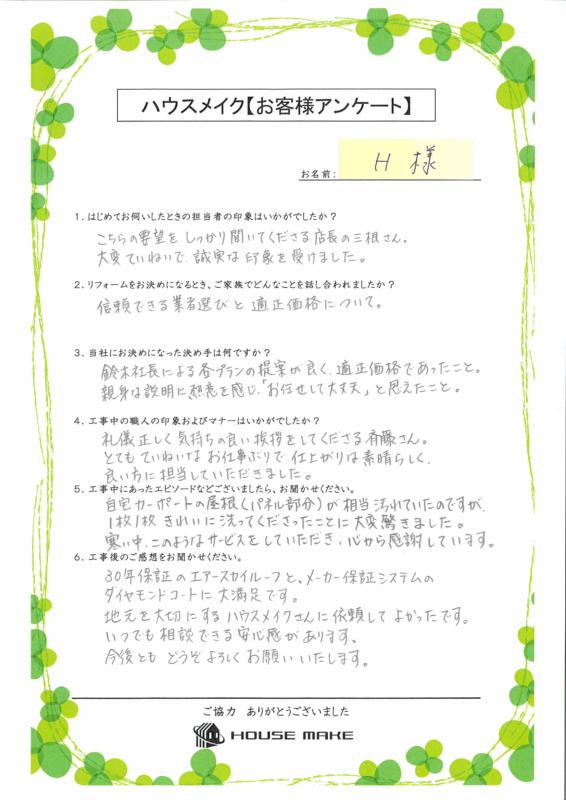 ハウスメイク【お客様アンケート】
お名前: H 様
1. はじめてお伺いしたときの担当者の印象はいかがでしたか?
こちらの要望をしっかり聞いてくださる店長の三根さん。
大変ていねいで、誠実な印象を受けました。
2. リフォームをお決めになるとき、ご家族でどんなことを話し合われましたか?
信頼できる業者選びと適正価格について。
3. 当社にお決めになった決め手は何ですか?
鈴木社長による各プランの提案が良く、適正価格であったこと。
親身な説明に熱意を感じ、「お任せして大丈夫」と思えたこと。
4. 工事中の職人の印象およびマナーはいかがでしたか?
礼儀正しく気持ちの良い挨拶をしてくださる斉藤さん。
とてもていねいなお仕事ぶりで、仕上がりは素晴らしく、
良い方に担当していただきました。
5. 工事中にあったエピソードなどございましたら、お聞かせください。
自宅カーポートの屋根(パネル部分)が相当汚れていたのですが、
1枚1枚きれいに洗ってくださったことに大変驚きました。
寒い中、このようなサービスをしていただき、心から感謝しています。
6. 工事後のご感想をお聞かせください。
30年保証のエアースカイルーフと、メーカー保証システムの
ダイヤモンドコートに大満足です。
地元を大切にするハウスメイクさんに依頼してよかったです。
いつでも相談できる安心感があります。
今後ともどうぞよろしくお願いいたします。
ご協力 ありがとうございました
HOUSE MAKE